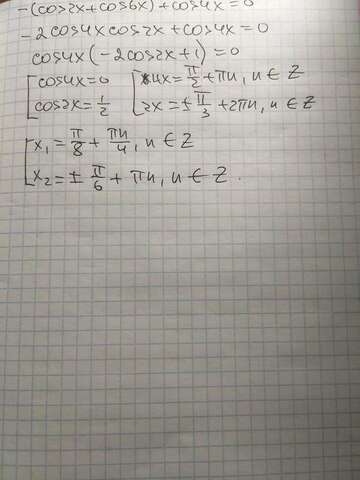 -(cos2x+cos6x)+cos4x=0
-2cos4xcos2x+cos4x=0
cos4x(-2cos2x+1)=0
[cos4x=0 [4x=π/2+πn, n∈Z
[cos2x=1/2 [2x=±π/3+2πn, n∈Z
[x₁=π/8+πn/4, n∈Z
[x₂=±π/6+πn, n∈Z.